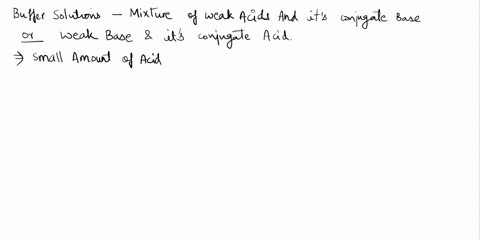 Buffer Solutions — Mixture of weak Acids And it's conjugate Base
or weak Base & it's conjugate Acid.
⇒ Small Amount of Acid